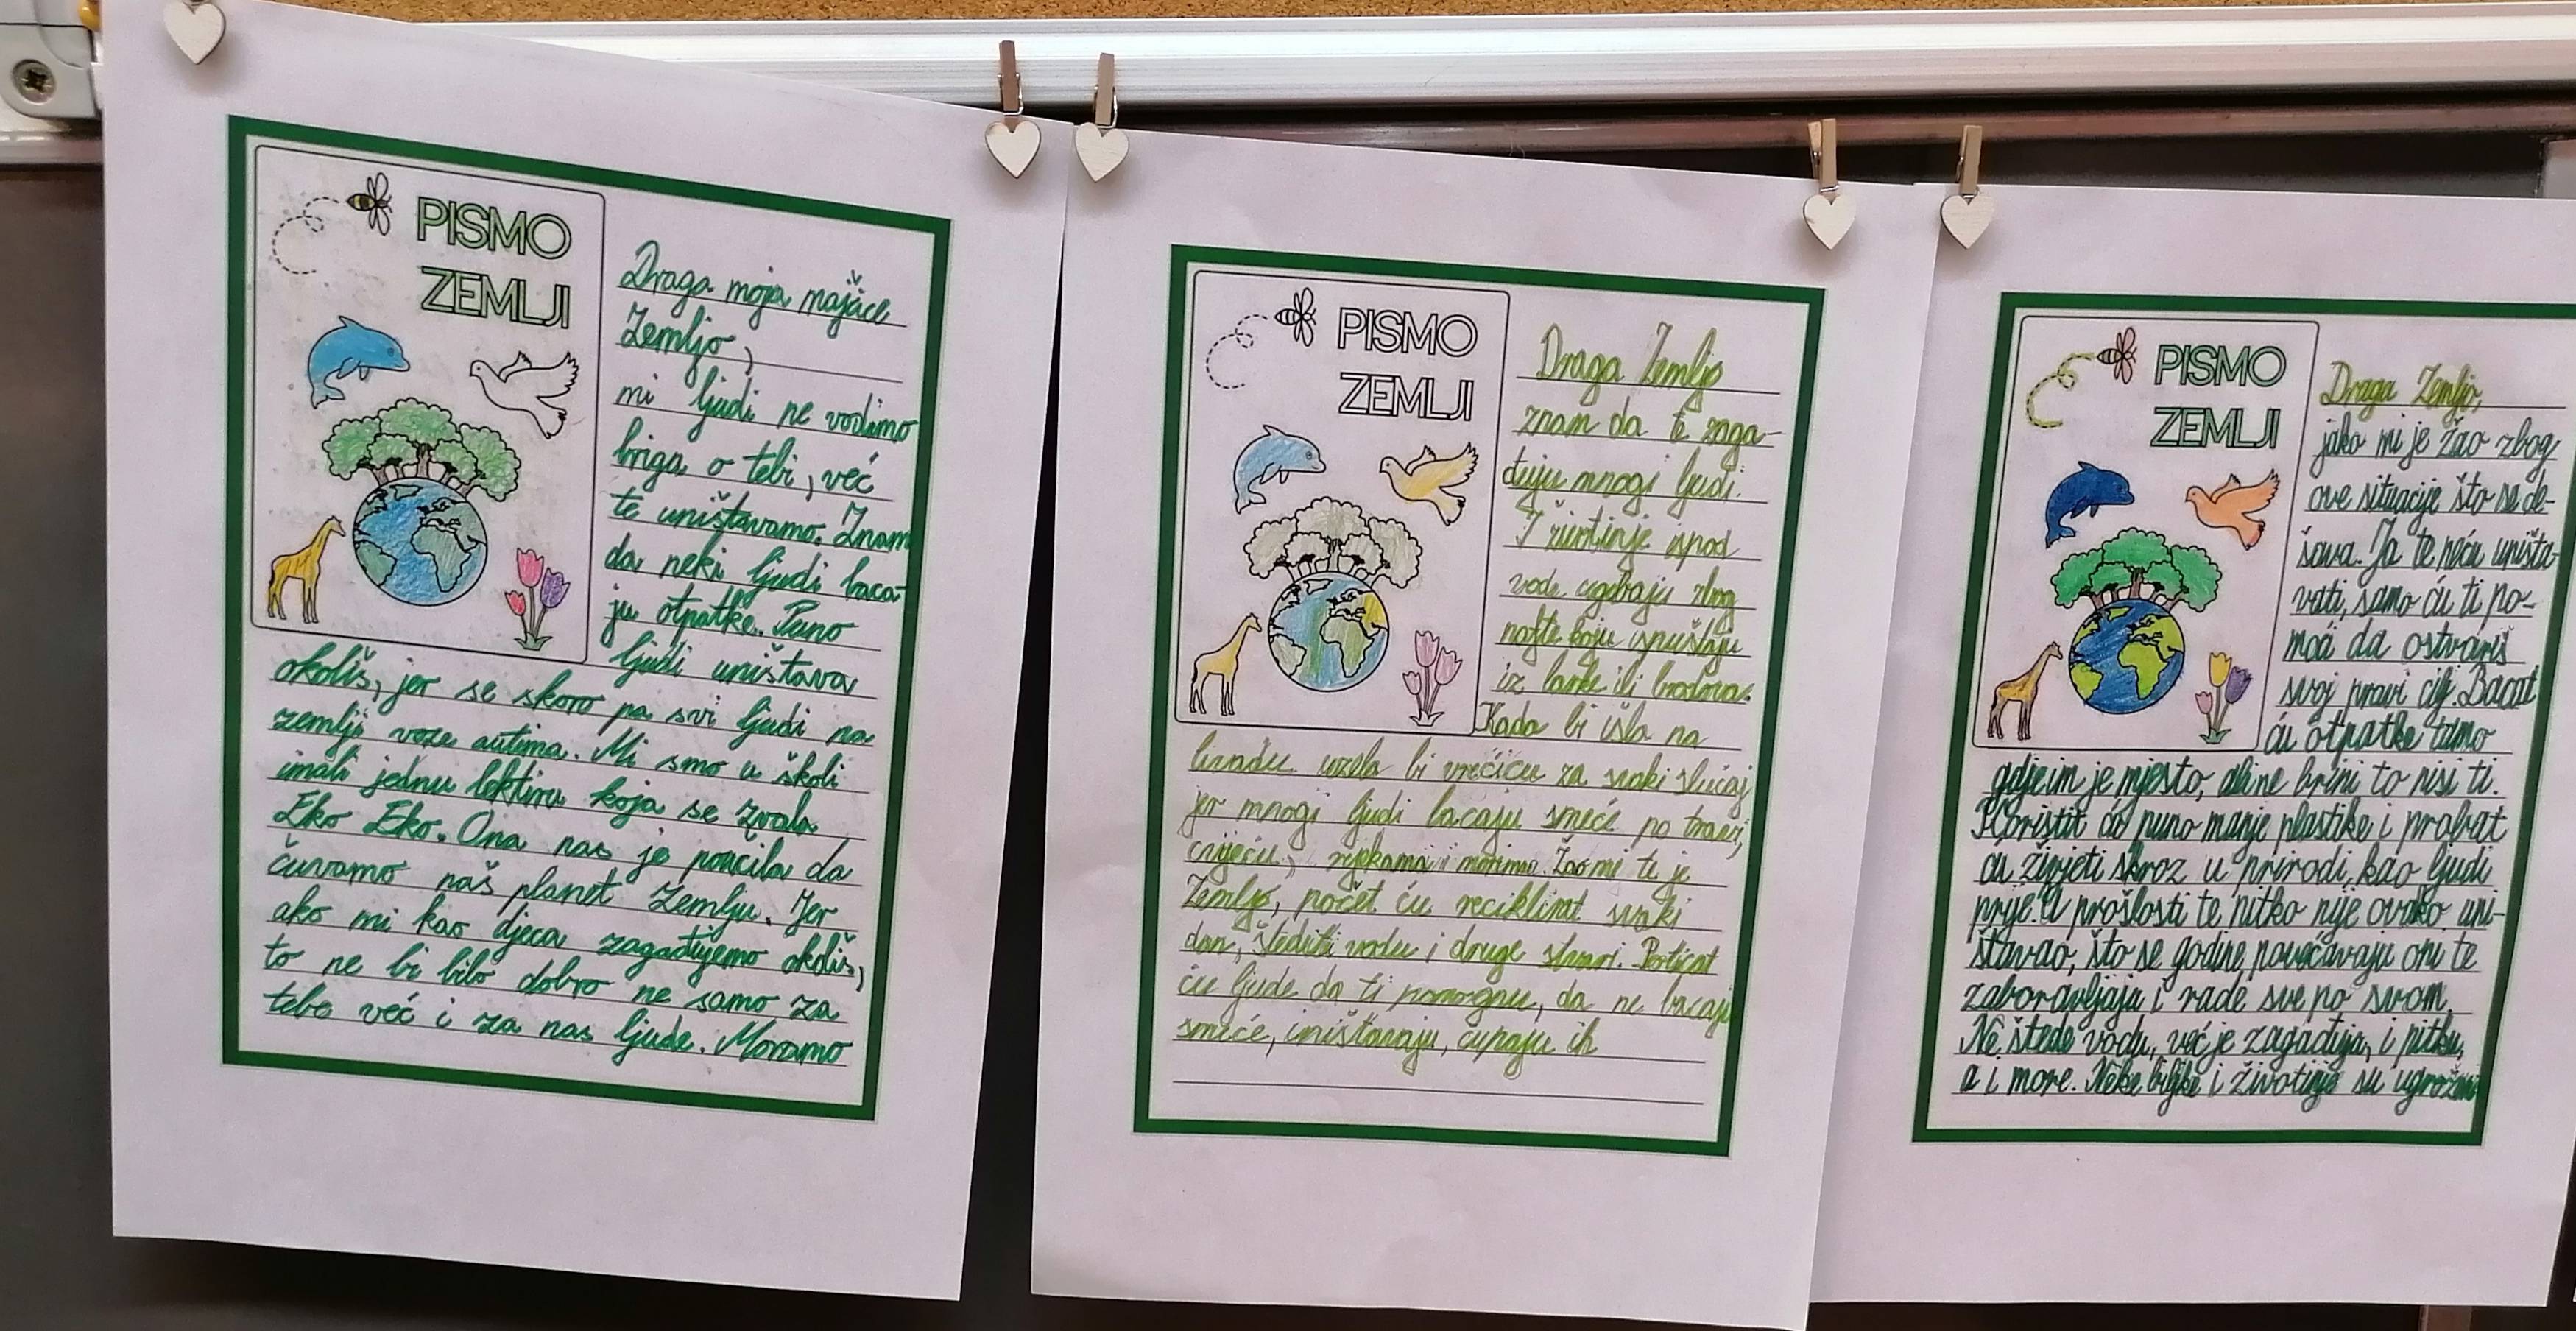 PISMO
ZEMLJI
Draga moja majčice
Zemljo,
mi ljudi ne vodimo
briga o tebi, već
te uništavamo. Znam
da neki ljudi baca-
ju otpatke. Puno
ljudi uništava
okoliš, jer se skoro pa svi ljudi na
zemlji voze autima. Mi smo u školi
imali jednu lektiru koja se zvala
Eko Eko. Ona nas je poučila da
čuvamo naš planet Zemlju. Jer
ako mi kao djeca zagađujemo okoliš,
to ne bi bilo dobro ne samo za
tebe već i za nas ljude. Moramo
PISMO
ZEMLJI
Draga Zemljo
znam da te zaga-
đuju mnogi ljudi.
I životinje ispod
vode ugibaju zbog
nafte koju ispuštaju
iz barke ili brodova.
Kada bi išla na
livadu uzela bi vrećicu za svaki slučaj
jer mnogi ljudi bacaju smeće po travi,
cvijeću, rijekama i morima. Žao mi te je
Zemljo, počet ću reciklirat svaki
dan, štediti vodu i druge stvari. Poticat
ću ljude da ti pomognu, da ne bacaju
smeće, uništavaju, čupaju ih
PISMO
ZEMLJI
Draga Zemljo,
jako mi je žao zbog
ove situacije što se de-
šava. Ja te neću uništa-
vati, samo ću ti po-
moći da ostvariš
svoj pravi cilj. Bacat
ću otpatke tamo
gdje im je mjesto, ali ne brini to nisi ti.
Koristit ću puno manje plastike i probat
ću živjeti skroz u prirodi, kao ljudi
prije. U prošlosti te nitko nije ovako uni-
štavao, što se godine povećavaju oni te
zaboravljaju i rade sve po svom.
Ne štede vodu, već je zagađuju, i pitku,
a i more. Neke biljke i životinje su ugrožene